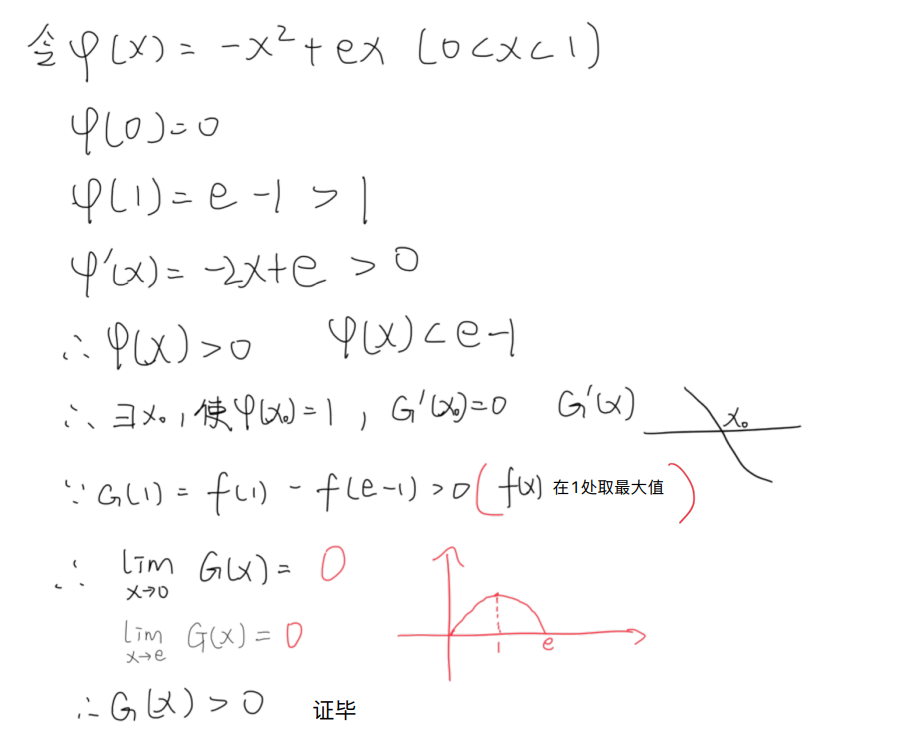 令φ(x)= -x²+ex (0<x<1)
φ(0)=0
φ(1)=e-1>1
φ'(x)=-2x+e>0
∴φ(x)>0 φ(x)<e-1
∴∃x₀,使φ(x₀)=1,G'(x₀)=0 G'(x) x₀
∵G(1)=f(1)-f(e-1)>0(f(x)在1处取最大值)
∴ lim x→0 G(x)=0
lim x→e G(x)=0
1 e
∴G(x)>0 证毕